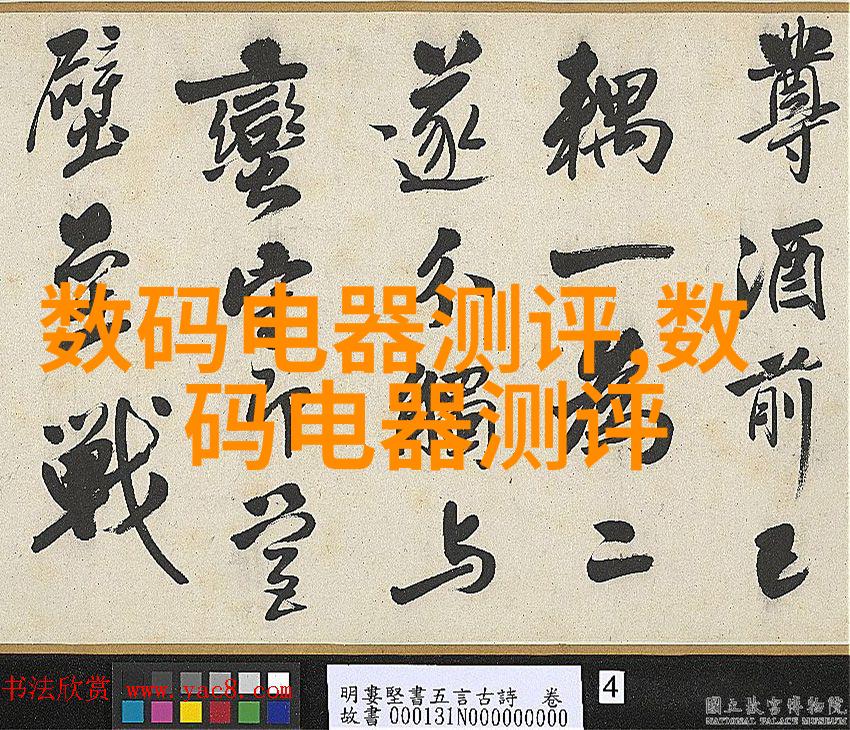 尊酒前已
耦一為二
遂不獨与
蠻
壁 戰
数码电器测评,数
码电器测评
书法欣赏 www.yac8.com
明婁堅書五言古詩 卷
故書 000131N000000000
4
國立故宮博物院
NATIONAL PALACE MUSEUM